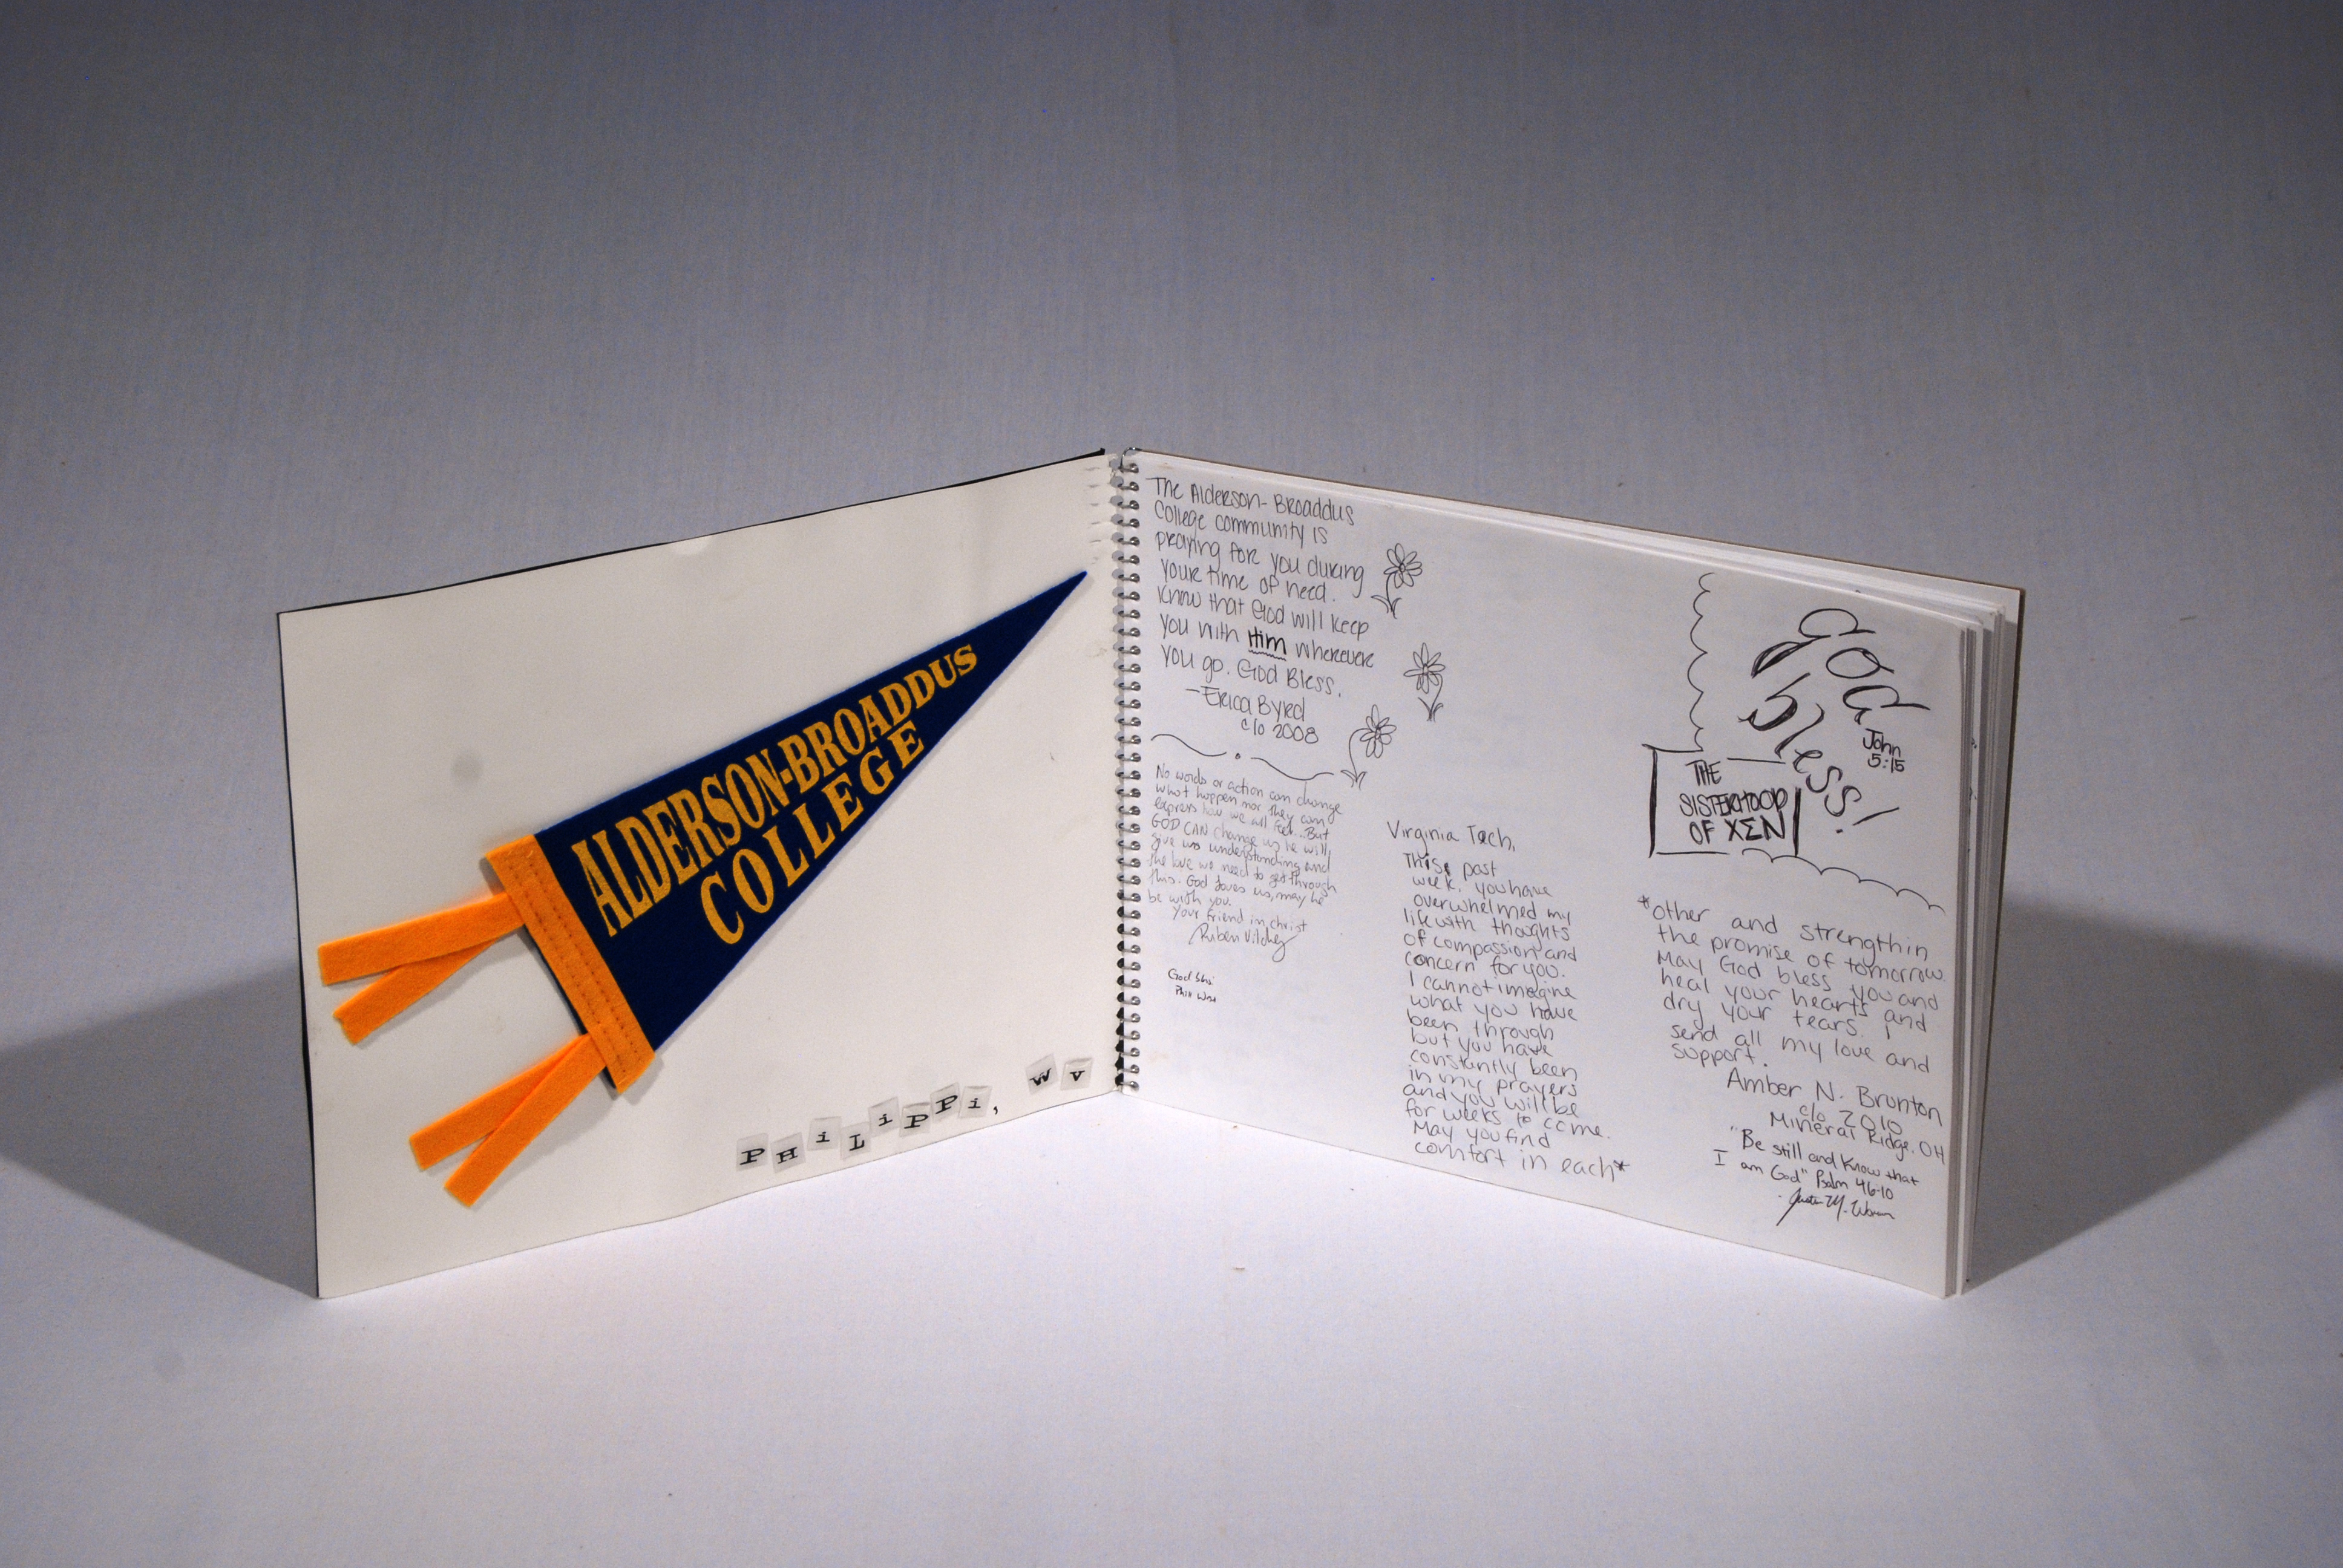 ALDERSON-BROADDUS
COLLEGE
PHiLiPPi, WV
The Alderson-Broaddus
College community is
praying for you during
your time of need.
Know that God will keep
you with Him wherever
you go. God Bless.
- Erica Byrd
c/o 2008
No words or action can change
what happen nor they can
express how we all feel... But
GOD CAN change us he will
give us understanding and
the love we need to get through
this. God loves us, may he
be with you.
Your friend in christ
Ruben Vilchez
God
Virginia Tech,
This past
week, you have
overwhelmed my
life with thoughts
of compassion and
concern for you.
I cannot imagine
what you have
been through
but you have
constantly been
in my prayers
and you will be
for weeks to come.
May you find
comfort in each*
God
bless!
John
5:15
THE
SISTERHOOD
OF ΧΣΝ
*other and strengthin
the promise of tomorrow.
May God bless you and
heal your hearts and
dry your tears. I
send all my love and
support.
Amber N. Brunton
c/o 2010
Mineral Ridge, OH
"Be still and Know that
I am God" Psalm 46:10